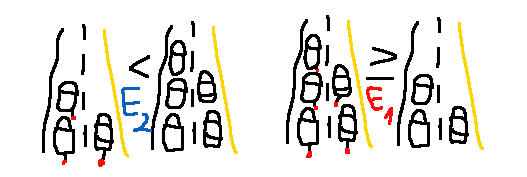 < E2
≥ E1